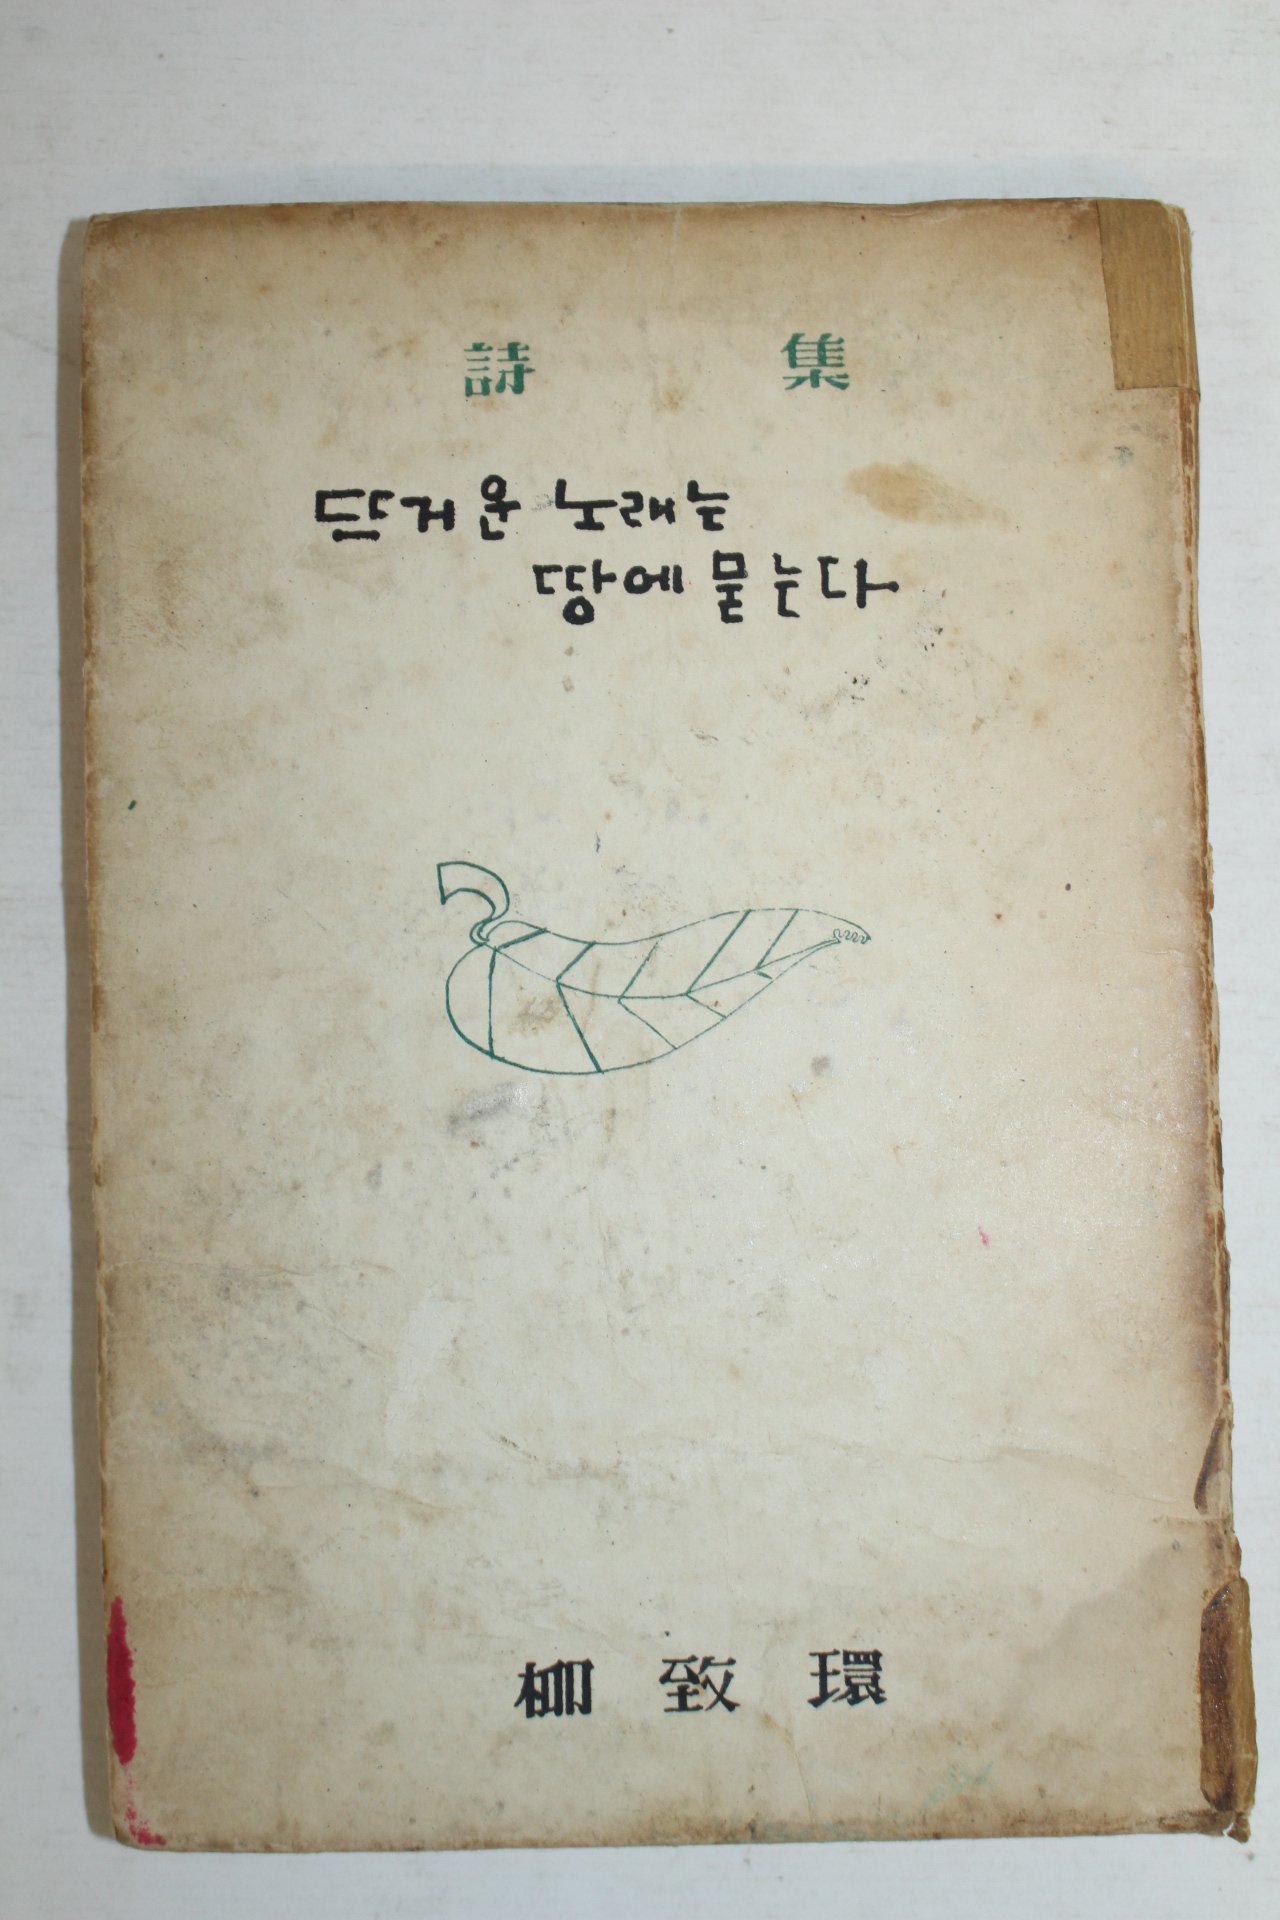 詩 集
뜨거운 노래는
땅에 묻는다
柳 致 環